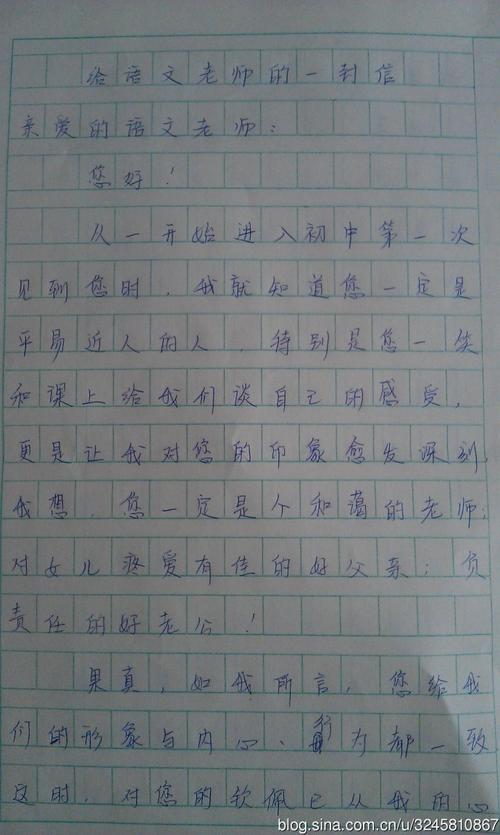 给语文老师的一封信
亲爱的语文老师：
您好！
从一开始进入初中第一次
见到您时，我就知道您一定是
平易近人的人，特别是您一笑
和课上给我们谈自己的感受，
更是让我对您的印象愈发深刻，
我想 您一定是个和蔼的老师；
对女儿疼爱有佳的好父亲；负
责任的好老公！
果真，如我所言，您给我
们的形象与内心、行为都一致
这时，对您的钦佩已从我的心
blog.sina.com.cn/u/3245810867